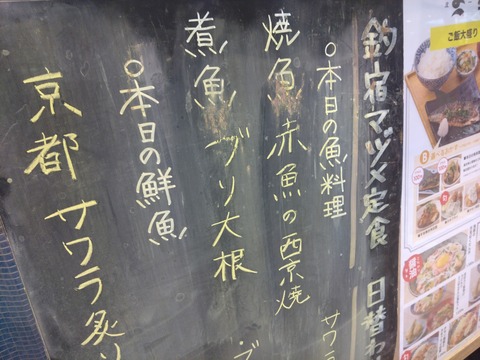 釣宿マヅメ定食 日替わ
○本日の魚料理 サワラ
焼魚 赤魚の西京焼
煮魚 ヅリ大根
○本日の鮮魚
京都 サワラ炙り
ご飯大盛り